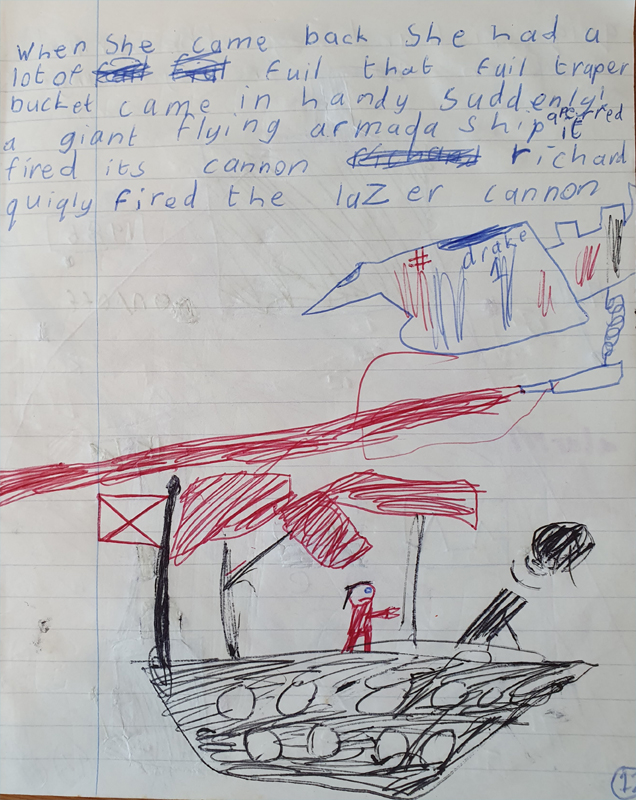 When she came back she had a
lot of fuil that fuil traper
bucket came in handy suddenly
a giant flying armada ship apeared it
fired its cannon richard
quiqly fired the laZer cannon
drake
1